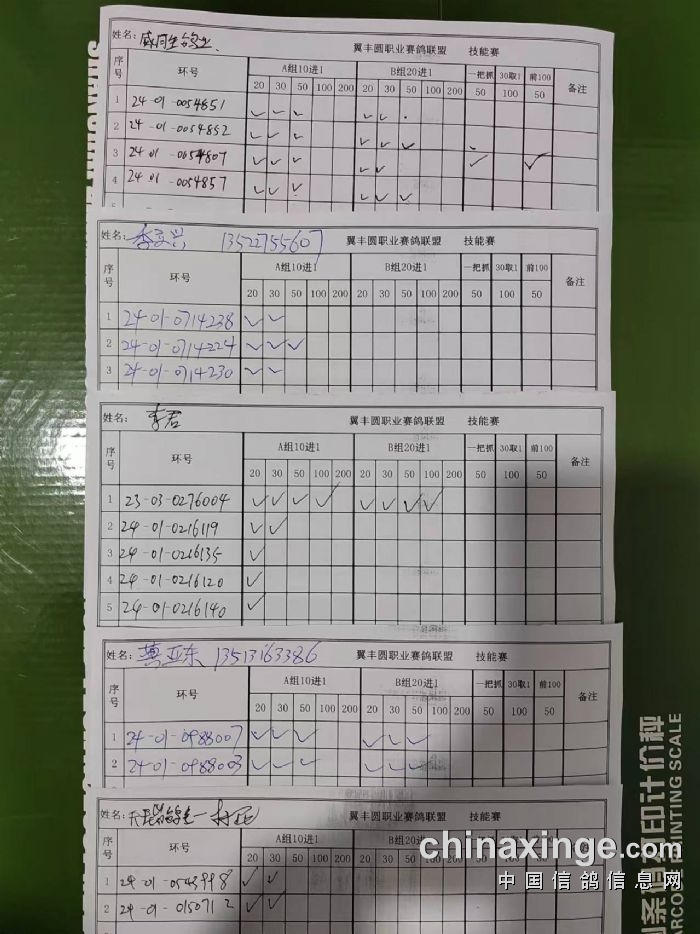 姓名: 威同生鸽业 翼丰圆职业赛鸽联盟 技能赛
序号 环号 A组10进1 B组20进1 一把抓 30取1 前100 备注
20 30 50 100 200 20 30 50 100 200 50 100 50
1 24-01-0054851 ✓ ✓ ✓ ✓ ✓
2 24-01-0054852 ✓ ✓ ✓ ✓ ✓ ✓
3 24-01-0054807 ✓ ✓ ✓ ✓ ✓ ✓ ✓
4 24-01-0054857 ✓ ✓ ✓ ✓ ✓ ✓
姓名: 13522755607 翼丰圆职业赛鸽联盟 技能赛
序号 环号 A组10进1 B组20进1 一把抓 30取1 前100 备注
20 30 50 100 200 20 30 50 100 200 50 100 50
1 24-01-0714238 ✓ ✓
2 24-01-0714224 ✓ ✓ ✓
3 24-01-0714230 ✓ ✓
姓名: 李君 翼丰圆职业赛鸽联盟 技能赛
序号 环号 A组10进1 B组20进1 一把抓 30取1 前100 备注
20 30 50 100 200 20 30 50 100 200 50 100 50
1 23-03-0276004 ✓ ✓ ✓ ✓ ✓ ✓ ✓ ✓
2 24-01-0216119 ✓ ✓
3 24-01-0216135 ✓
4 24-01-0216120 ✓
5 24-01-0216140 ✓
姓名: 龚亚东 13513163386 翼丰圆职业赛鸽联盟 技能赛
序号 环号 A组10进1 B组20进1 一把抓 30取1 前100 备注
20 30 50 100 200 20 30 50 100 200 50 100 50
1 24-01-0988007 ✓ ✓ ✓ ✓ ✓ ✓
2 24-01-0988003 ✓ ✓ ✓ ✓ ✓ ✓
姓名: 翼丰圆职业赛鸽联盟 技能赛
序号 环号 A组10进1 B组20进1
20 30 50 100 200 20 30 50
1 24-01-0543998 ✓ ✓
2 24-01-0150712 ✓ ✓
chinaxinge.com
中国信鸽信息网
打印计价秤
BARCODE PRINTING SCALE